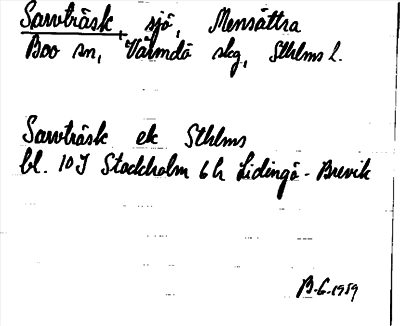 Sarvträsk, sjö, Mensättra
Boo sn, Värmdö skg, Sthlms l.
Sarvträsk ek Sthlms
bl. 10 J Stockholm 6 h Lidingö - Brevik
B-G. 1959